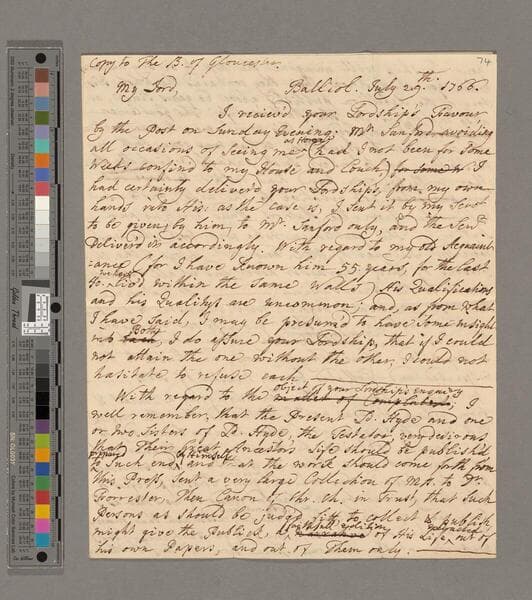 Copy to The B. of Gloucester.
74
My Lord,
Balliol. July 29th. 1766.
I reciev'd your Lordship's Favour
by the Post on Sunday Evening: Mr. Sanford avoiding
all occasions of Seeing me at Home (had I not been for Some
Weeks confin'd to my House and Couch) for some w I
had certainly deliver'd your Lordships, from my own
hands into His: as the case is, I sent it by my Servt.
to be given by him, to Mr. Sanford only, and the Servt.
Deliver'd it accordingly. With regard to my old Acquaint
=ance (for I have known him 55 years, for the last
40. we have liv'd within the Same Walls) His Qualifications
and his Qualitys are uncommon; and, as from what
I have Said, I may be presum'd to have Some insight
into Both, I do assure your Lordship, that if I could
not attain the one without the other, I could not
hasitate to refuse each.
With regard to the object of your Lordship's enquiry; I
well remember, that the Present D. Hyde and one
or two Sisters of Ld. Hyde, the Testator, very desirous
that Their great Ancestors Life should be publish'd
to Such end, and that the work should come forth from
this Press, Sent a very large Collection of MSS. to Dr.
Forrester, Then Canon of Chr. Ch. in Trust, that Such
Persons as should be judg'd fitt to collect & Publish,
might give the Publick, a of His Life, out of
his own Papers, and out of Them only.